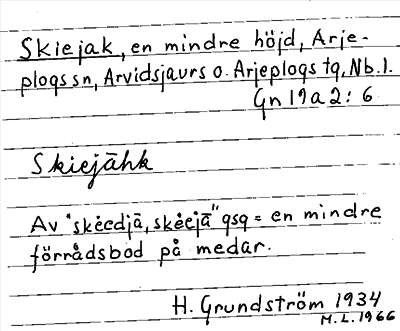 Skiejak, en mindre höjd, Arje-
plogs sn, Arvidsjaurs o. Arjeplogs tg, Nb. l.
Gn 19 a 2: 6
Skiejāhk
Av "skēedjā, skēejā" gsg = en mindre
förrådsbod på medar.
H. Grundström 1934
M. L. 1966